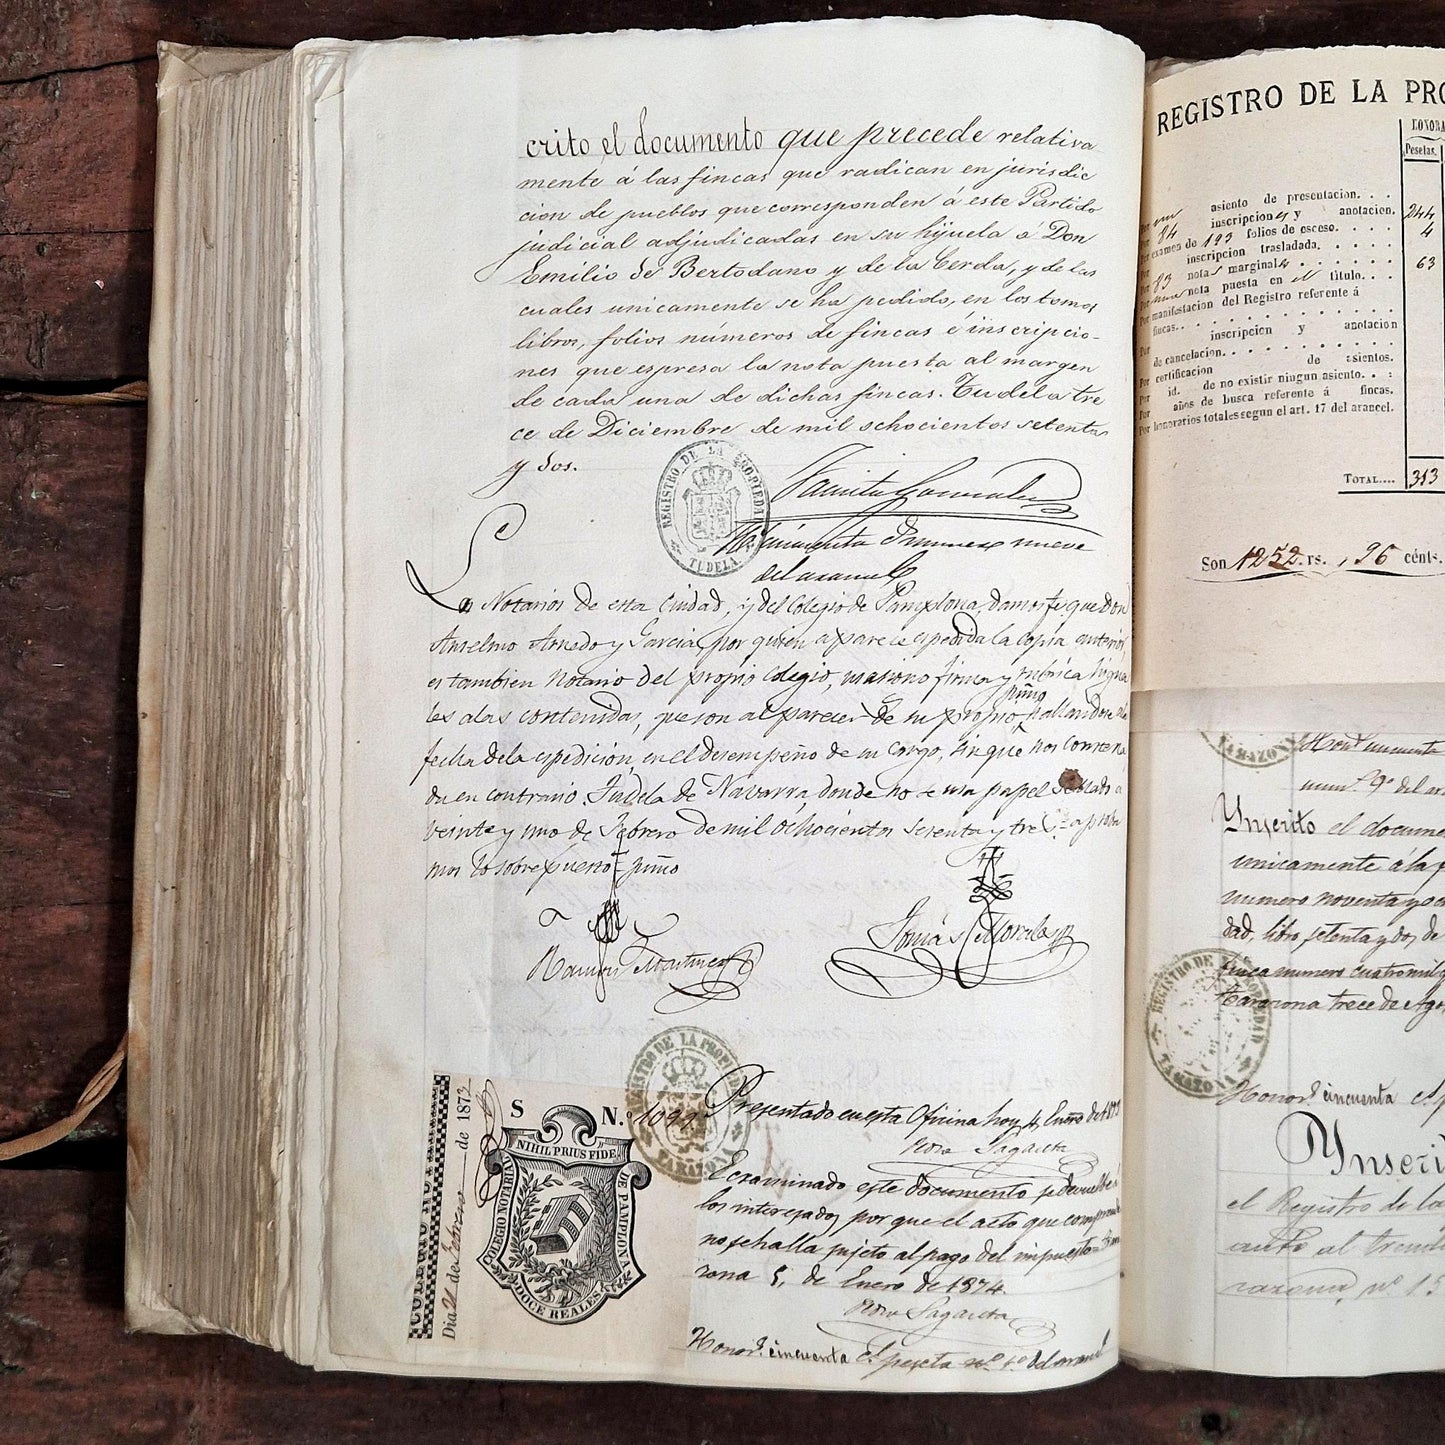 crito el documento que precede relativa
mente á las fincas que radican en jurisdic
cion de pueblos que corresponden á este Partido
judicial adjudicadas en su hijuela á Don
Emilio de Bertodano y de la Cerda, y de las
cuales unicamente se ha pedido, en los tomos
libros, folios números de fincas é inscripcio-
nes que espresa la nota puesta al margen
de cada una de dichas fincas. Tudela tre
ce de Diciembre de mil ochocientos setenta
y dos.
REGISTRO DE LA PROPIEDAD
TUDELA
Jacinto Gonzalez
nueve
del arancel
Los Notarios de esta Ciudad, y del Colegio de Pamplona, damos fe que Don
Anselmo Arnedo y Garcia, por quien aparece espedida la copia anterior,
es tambien Notario del propio Colegio, su signo firma y rubrica igua
les a las contenidas, que son al parecer de su propio puño, hallandose a la
fecha de la espedicion, en el desempeño de su cargo, sin que nos conste na
da en contrario. Tudela de Navarra, donde no se usa papel sellado á
veinte y uno de Febrero de mil ochocientos setenta y tres = aproba
mos lo sobrepuesto = puño
Ramon Martinez
Tomás Morales
REGISTRO DE LA PROPIEDAD
TARAZONA
COLEGIO NO
Dia 21 de Febrero de 1873
S N.º 1099
NIHIL PRIUS FIDE
COLEGIO NOTARIAL DE PAMPLONA
DOCE REALES
Presentado en esta Oficina hoy 4 Enero de 187
Pedro Sagaseta
Ecsaminado este documento se devuelve á
los interesados, por que el acto que comprende
no se halla sujeto al pago del impuesto = Tara
zona 5, de Enero de 1874.
Pedro Sagaseta
Honor.s cincuenta c.s peseta n.º 9º del arancel
REGISTRO DE LA PRO
HONORA
Pesetas.
Por un asiento de presentacion. . . .
Por 84 inscripciones y anotacion. 244
Por examen de 193 folios de esceso. . . . . 4
Por inscripcion trasladada. . . . .
Por 83 notas marginales . . . . . . 63
Por una nota puesta en el título. . . .
Por manifestacion del Registro referente á
fincas. . . . . . . . . . . . .
Por inscripcion y anotacion
de cancelacion. . . . . . . . . .
Por certificacion de asientos.
Por id. de no existir ningun asiento. . :
Por años de busca referente á fincas.
Por honorarios totales segun el art. 17 del arancel.
TOTAL.... 313
Son 1252 rs. , 96 cénts.
TARAZONA
Hon.s cincuenta
num.º 9º del ar
Ynscrito el docume
unicamente á la f
numero noventa y oc
dad, libro setenta y dos, de
finca numero cuatro mil q
Tarazona trece de Ago
REGISTRO DE LA PROPIEDAD
TARAZONA
Honor.s cincuenta c.s p
Ynscri
el Registro de la